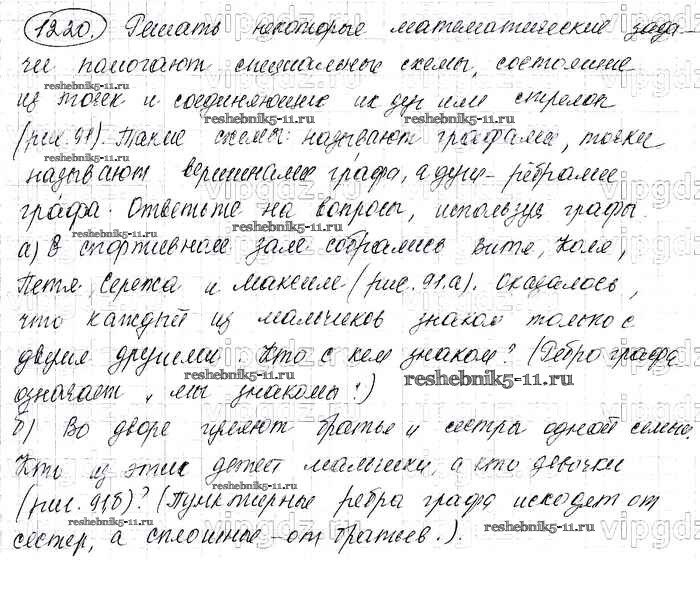 1220. Решать некоторые математические зада-
чи помогают специальные схемы, состоящие
из точек и соединяющих их дуг или стрелок
(рис. 91). Такие схемы называют графами, точки
называют вершинами графа, а дуги - рёбрами
графа. Ответьте на вопросы, используя графы.
а) В спортивном зале собрались Витя, Коля,
Петя, Сережа и Максим (рис. 91,а). Оказалось,
что каждый из мальчиков знаком только с
двумя другими. Кто с кем знаком? (Ребро графа
означает "мы знакомы".)
б) Во дворе гуляют братья и сестры одной семьи.
Кто из этих детей мальчики, а кто девочки
(рис. 91,б)? (Пунктирные ребра графа исходят от
сестер, а сплошные - от братьев.).
reshebnik5-11.ru
reshebnik5-11.ru
reshebnik5-11.ru
reshebnik5-11.ru
reshebnik5-11.ru
reshebnik5-11.ru
reshebnik5-11.ru
reshebnik5-11.ru
reshebnik5-11.ru
reshebnik5-11.ru
reshebnik5-11.ru
reshebnik5-11.ru